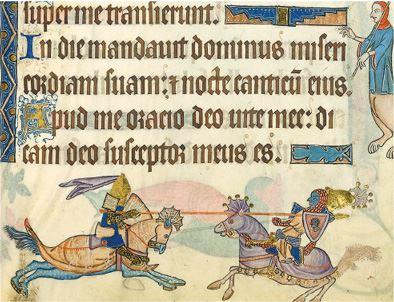 super me transierunt.
In die mandauit dominus miseri
cordiam suam: ⁊ nocte canticū eius.
Apud me oracio deo uite mee: di
cam deo susceptor meus es.